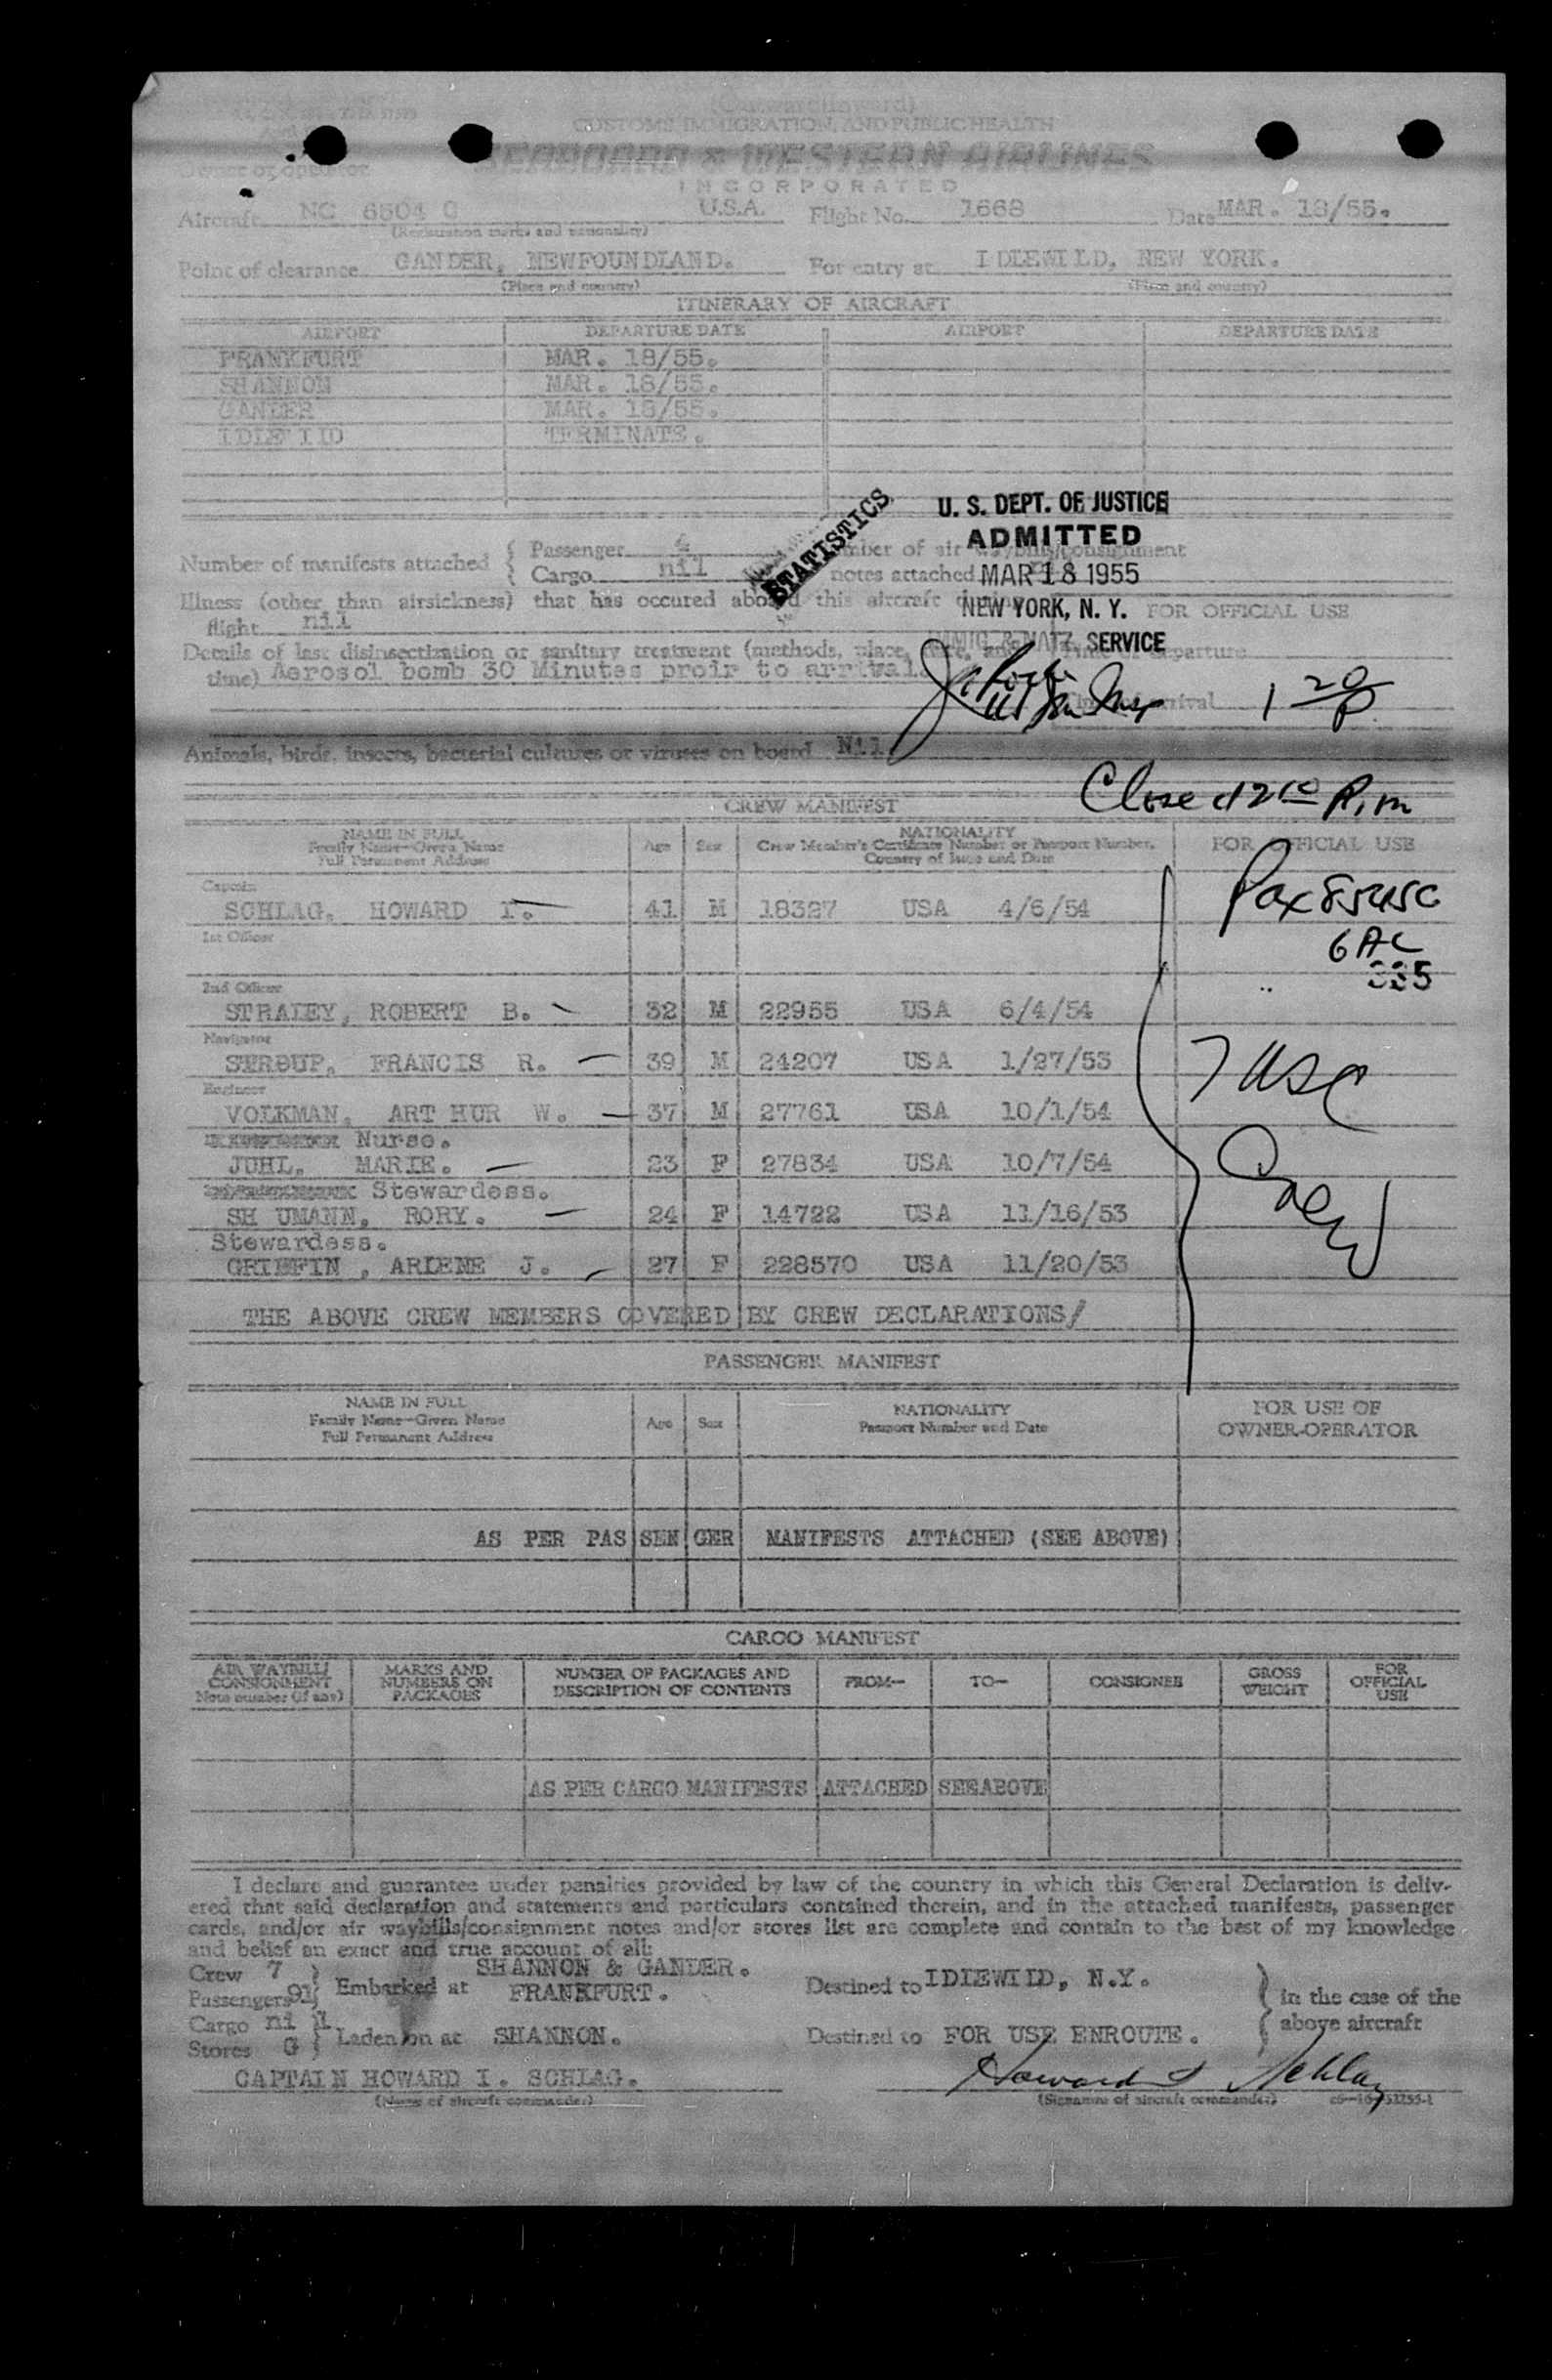 (Outward/Inward)
CUSTOMS, IMMIGRATION, AND PUBLIC HEALTH
Owner or operator SEABOARD & WESTERN AIRLINES
INCORPORATED
Aircraft NC 6504 C U.S.A. Flight No. 1668 Date MAR. 18/55.
(Registration marks and nationality)
Point of clearance GANDER, NEWFOUNDLAND. For entry at IDLEWILD, NEW YORK.
(Place and country) (Place and country)
ITINERARY OF AIRCRAFT
AIRPORT DEPARTURE DATE AIRPORT DEPARTURE DATE
FRANKFURT MAR. 18/55.
SHANNON MAR. 18/55.
GANDER MAR. 18/55.
IDLE I ID TERMINATE.
U. S. DEPT. OF JUSTICE
ADMITTED
MAR 18 1955
NEW YORK, N. Y.
IMMIG. & NATZ. SERVICE
STATISTICS
Number of manifests attached { Passenger 4 Number of air waybills/consignment
Cargo nil notes attached
Illness (other than airsickness) that has occured aboard this aircraft during FOR OFFICIAL USE
flight nil
Details of last disinsectization or sanitary treatment (methods, place, date, and Time of departure
time) Aerosol bomb 30 Minutes proir to arrival.
Time of arrival 1 20 P
Animals, birds, insects, bacterial cultures or viruses on board Nil
Closed 2 10 P.m
CREW MANIFEST
NAME IN FULL
Family Name—Given Name
Full Permanent Address
Age Sex
NATIONALITY
Crew Member's Certificate Number or Passport Number,
Country of Issue and Date
FOR OFFICIAL USE
Captain
SCHLAG, HOWARD I. 41 M 18327 USA 4/6/54
Pax 85 USC
6 AC
335
1st Officer
2nd Officer
STRALEY, ROBERT B. 32 M 22955 USA 6/4/54
Navigator
STROUP, FRANCIS R. 39 M 24207 USA 1/27/53
7 USC
Engineer
VOLKMAN, ART HUR W. 37 M 27761 USA 10/1/54
Nurse.
JUHL, MARIE. 23 F 27834 USA 10/7/54
Crew
Stewardess.
SH UMANN, RORY. 24 F 14722 USA 11/16/53
Stewardess.
GRIFFIN , ARLENE J. 27 F 228570 USA 11/20/53
THE ABOVE CREW MEMBERS COVERED BY CREW DECLARATIONS/
PASSENGER MANIFEST
NAME IN FULL
Family Name—Given Name
Full Permanent Address
Age Sex
NATIONALITY
Passport Number and Date
FOR USE OF
OWNER-OPERATOR
AS PER PAS SEN GER MANIFESTS ATTACHED (SEE ABOVE)
CARGO MANIFEST
AIR WAYBILL/
CONSIGNMENT
Note number (if any)
MARKS AND
NUMBERS ON
PACKAGES
NUMBER OF PACKAGES AND
DESCRIPTION OF CONTENTS
FROM—
TO—
CONSIGNEE
GROSS
WEIGHT
FOR
OFFICIAL
USE
AS PER CARGO MANIFESTS ATTACHED SEE ABOVE
I declare and guarantee under penalties provided by law of the country in which this General Declaration is deliv-
ered that said declaration and statements and particulars contained therein, and in the attached manifests, passenger
cards, and/or air waybills/consignment notes and/or stores list are complete and contain to the best of my knowledge
and belief an exact and true account of all:
Crew 7 SHANNON & GANDER.
Passengers 91 } Embarked at FRANKFURT. Destined to IDLEWILD, N.Y. } in the case of the
Cargo ni l
Stores G } Laden on at SHANNON. Destined to FOR USE ENROUTE. { above aircraft
CAPTAIN HOWARD I. SCHLAG. Howard I Schlag
(Name of aircraft commander) (Signature of aircraft commander)